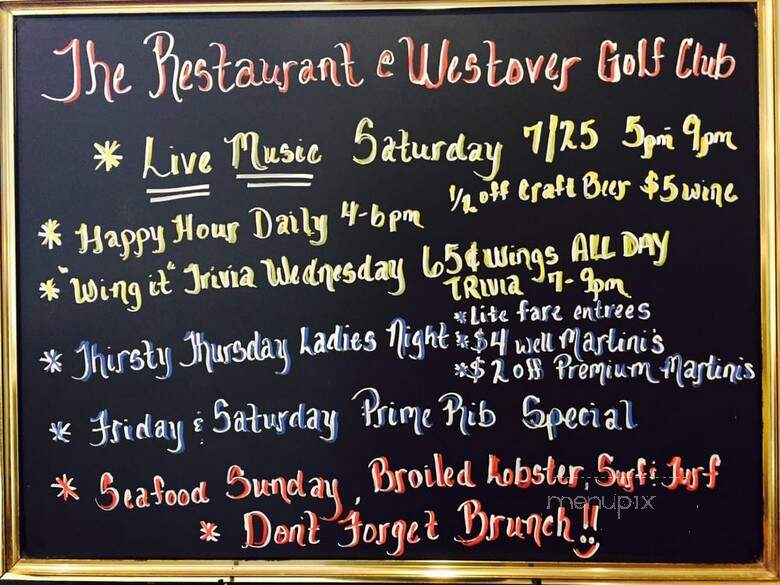 The Restaurant @ Westover Golf Club
* Live Music Saturday 7/25 5pm 9pm
* Happy Hour Daily 4-6pm 1/2 off Craft Beer $5 wine
* "Wing it" Trivia Wednesday 65¢ Wings ALL DAY
TRivia 7-9pm
* Thirsty Thursday Ladies Night
* Lite fare entrees
* $4 well Martini's
* $2 off Premium Martinis
* Friday & Saturday Prime Rib Special
* Seafood Sunday, Broiled Lobster, Surf & Turf
* Dont Forget Brunch!!
menupix